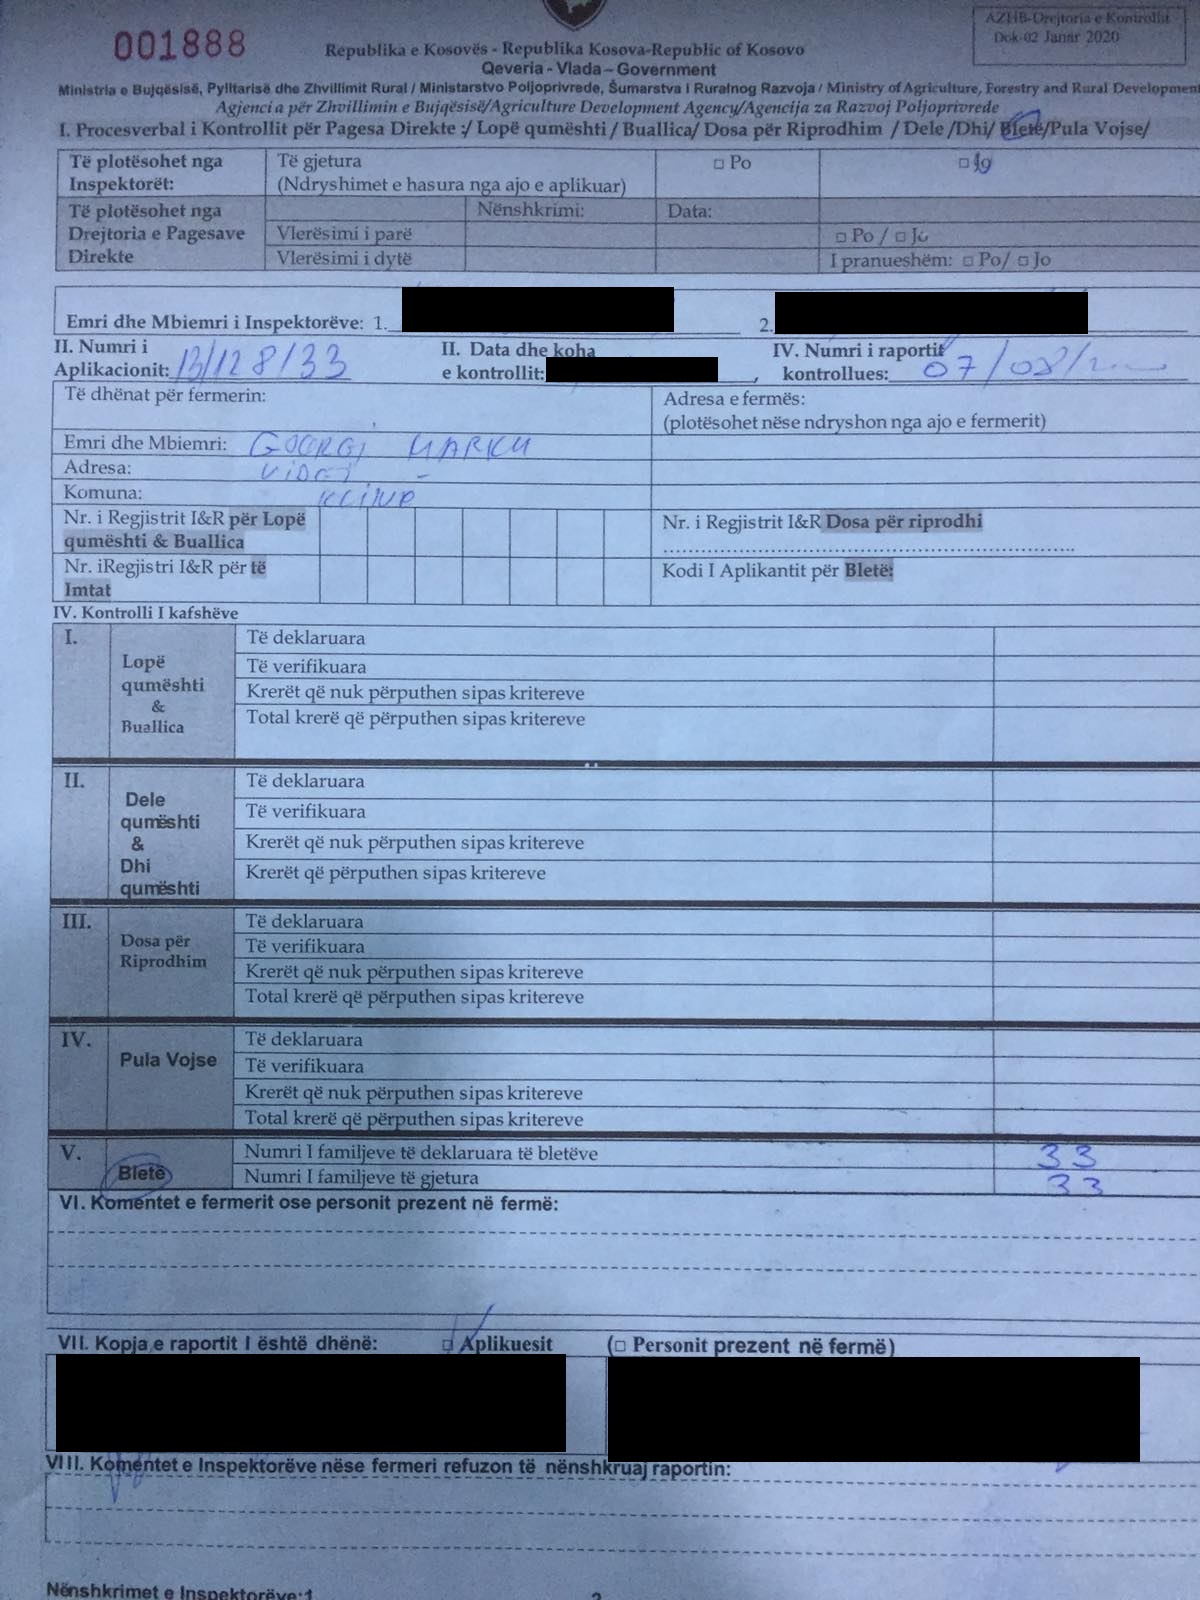 001888
AZHB-Drejtoria e Kontrollit
Dok-02 Janar 2020
Republika e Kosovës - Republika Kosova-Republic of Kosovo
Qeveria - Vlada – Government
Ministria e Bujqësisë, Pylltarisë dhe Zhvillimit Rural / Ministarstvo Poljoprivrede, Šumarstva i Ruralnog Razvoja / Ministry of Agriculture, Forestry and Rural Development
Agjencia për Zhvillimin e Bujqësisë/Agriculture Development Agency/Agencija za Razvoj Poljoprivrede
I. Procesverbal i Kontrollit për Pagesa Direkte :/ Lopë qumështi / Buallica/ Dosa për Riprodhim / Dele /Dhi/ Bletë/Pula Vojse/
Të plotësohet nga Inspektorët:
Të gjetura
(Ndryshimet e hasura nga ajo e aplikuar)
□ Po
□ Jo
Të plotësohet nga Drejtoria e Pagesave Direkte
Nënshkrimi:
Data:
Vlerësimi i parë
□ Po / □ Jo
Vlerësimi i dytë
I pranueshëm: □ Po/ □ Jo
Emri dhe Mbiemri i Inspektorëve: 1.
2.
II. Numri i Aplikacionit: 13/128/33
II. Data dhe koha e kontrollit:
IV. Numri i raportit kontrollues: 07/08/
Të dhënat për fermerin:
Adresa e fermës:
(plotësohet nëse ndryshon nga ajo e fermerit)
Emri dhe Mbiemri: MARKU
Adresa:
Komuna: KLINË
Nr. i Regjistrit I&R për Lopë qumështi & Buallica
Nr. i Regjistrit I&R Dosa për riprodhi
Nr. iRegjistri I&R për të Imtat
Kodi I Aplikantit për Bletë:
IV. Kontrolli I kafshëve
I.
Lopë qumështi & Buallica
Të deklaruara
Të verifikuara
Krerët që nuk përputhen sipas kritereve
Total krerë që përputhen sipas kritereve
II.
Dele qumështi & Dhi qumështi
Të deklaruara
Të verifikuara
Krerët që nuk përputhen sipas kritereve
Krerët që përputhen sipas kritereve
III.
Dosa për Riprodhim
Të deklaruara
Të verifikuara
Krerët që nuk përputhen sipas kritereve
Total krerë që përputhen sipas kritereve
IV.
Pula Vojse
Të deklaruara
Të verifikuara
Krerët që nuk përputhen sipas kritereve
Total krerë që përputhen sipas kritereve
V.
Bletë
Numri I familjeve të deklaruara të bletëve 33
Numri I familjeve të gjetura 33
VI. Komentet e fermerit ose personit prezent në fermë:
VII. Kopja e raportit I është dhënë: □ Aplikuesit (□ Personit prezent në fermë)
VIII. Komentet e Inspektorëve nëse fermeri refuzon të nënshkruaj raportin:
Nënshkrimet e Inspektorëve:1
2